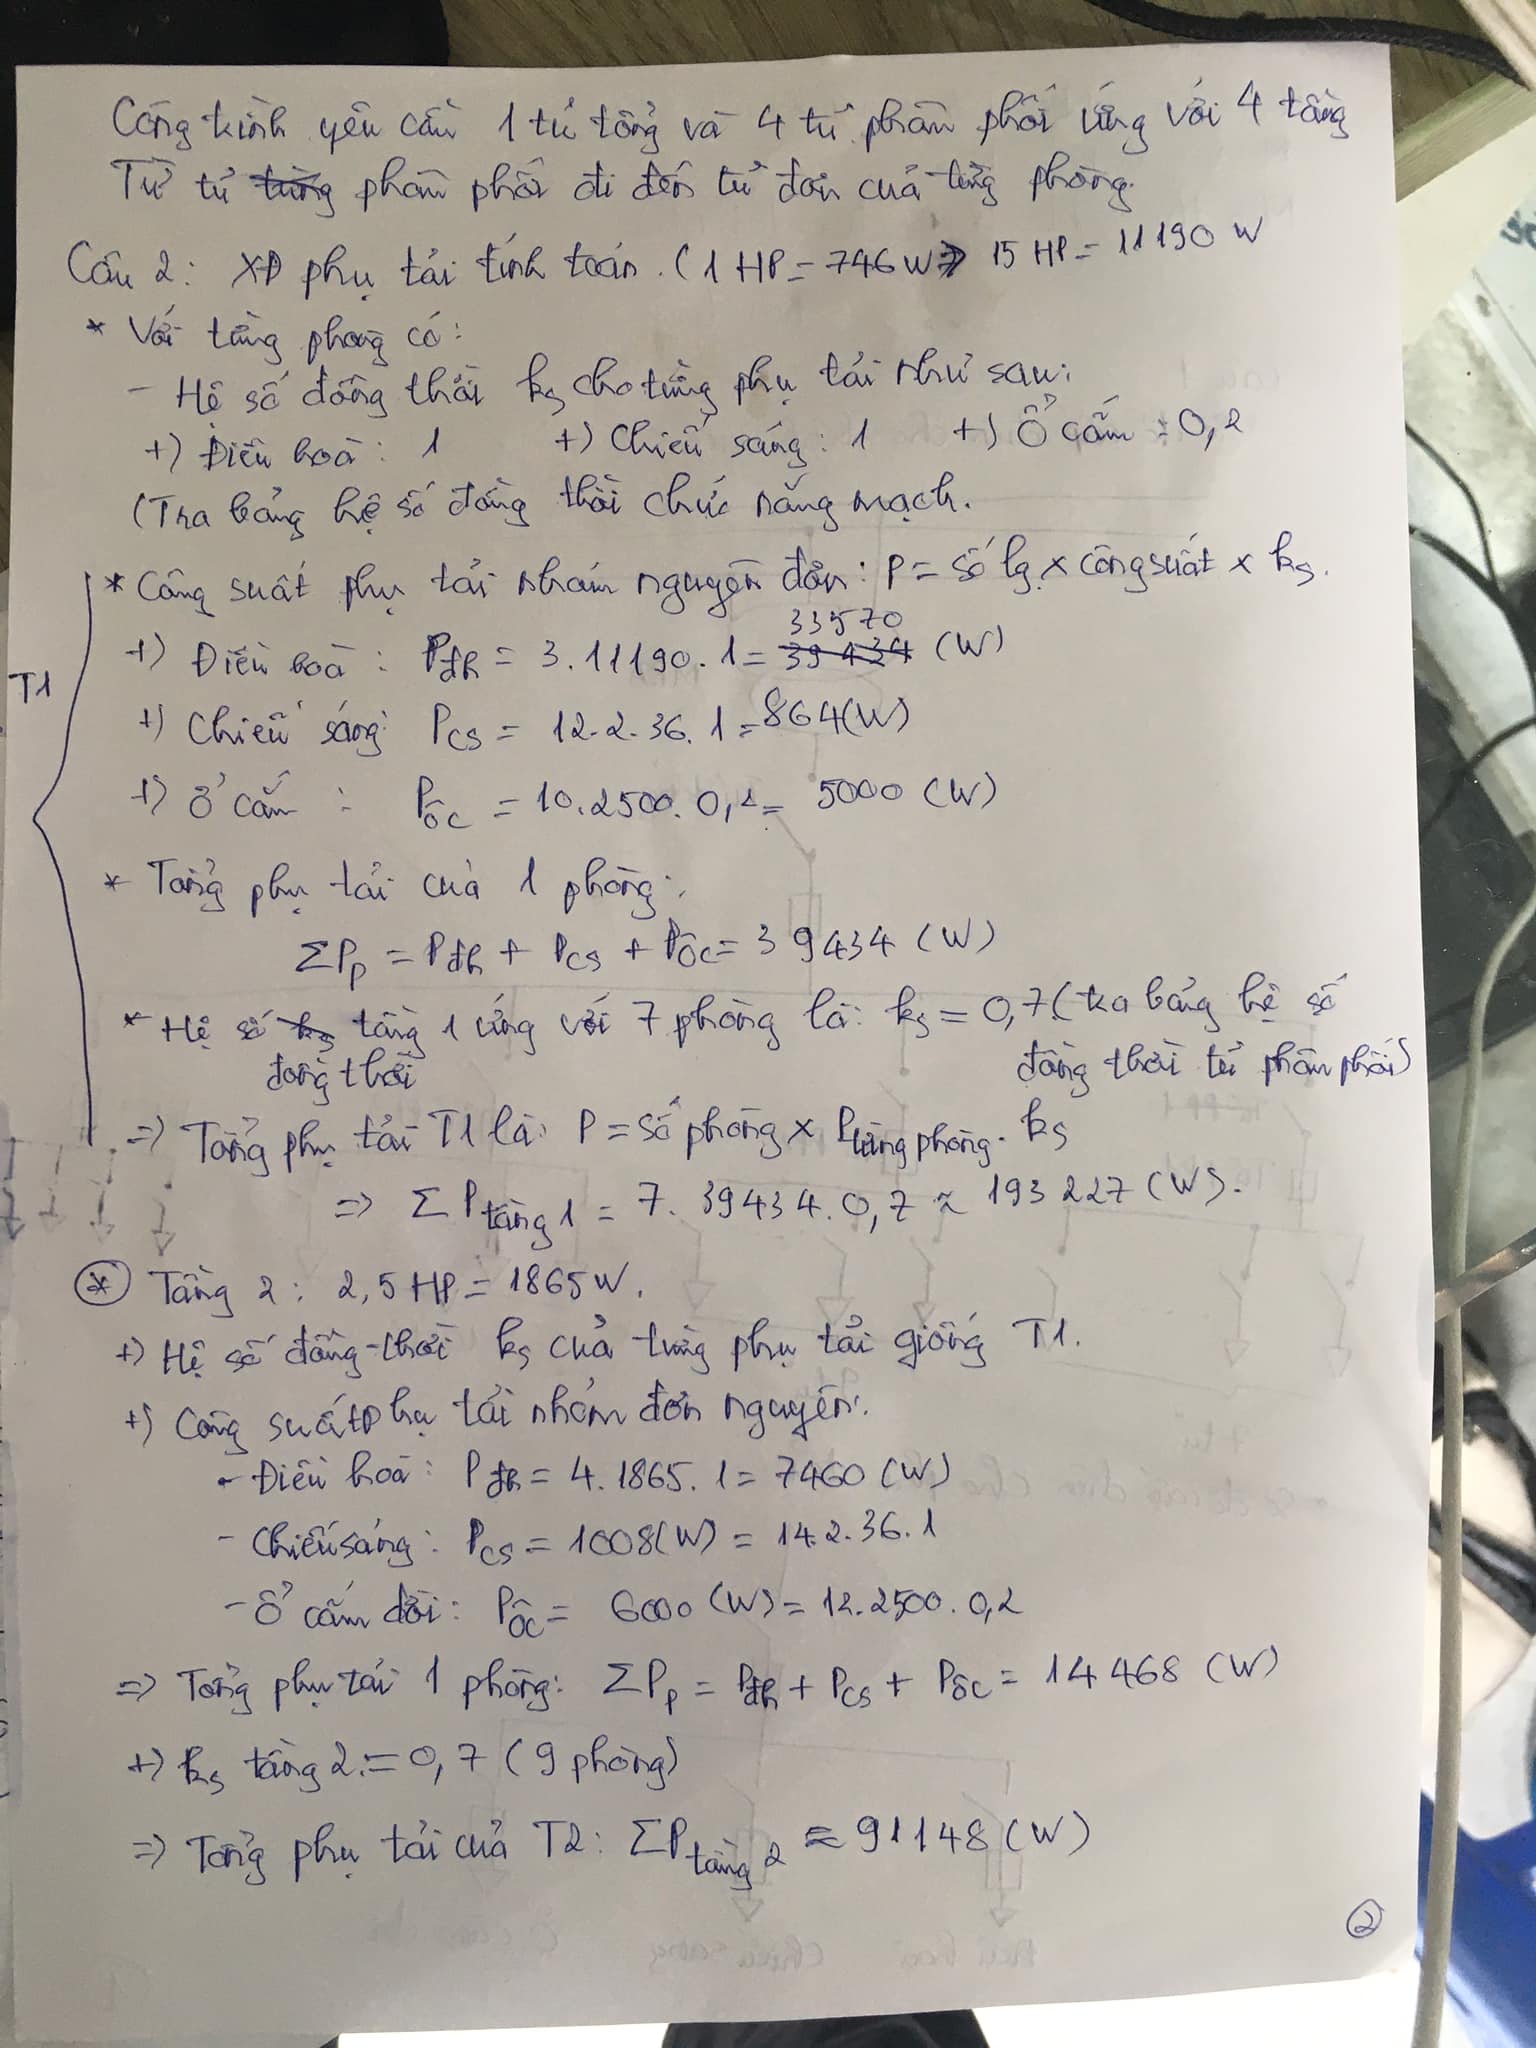 Công trình yêu cầu 1 tủ tổng và 4 tủ phân phối ứng với 4 tầng
Từ tủ từng phân phối đi đến tủ đơn của từng phòng.
Câu 2: XĐ phụ tải tính toán. (1 HP = 746 W => 15 HP = 11190 W
* Với từng phòng có:
- Hệ số đồng thời ks cho từng phụ tải như sau:
+) Điều hoà: 1 +) Chiếu sáng: 1 +) Ổ cắm: 0,2
(Tra bảng hệ số đồng thời chức năng mạch.
* Công suất phụ tải nhóm nguyên đơn: P = số lg x công suất x ks.
33570
T1
+) Điều hoà: Pđh = 3.11190.1 = 39434 (W)
+) Chiếu sáng: Pcs = 12.2.36.1 = 864(W)
+) Ổ cắm: Pôc = 10.2500.0,2 = 5000 (W)
* Tổng phụ tải của 1 phòng:
ΣPp = Pđh + Pcs + Pôc = 39434 (W)
* Hệ số ks tầng 1 ứng với 7 phòng là: ks = 0,7 (tra bảng hệ số
đồng thời đồng thời tủ phân phối)
=> Tổng phụ tải T1 là: P = số phòng x Ptừng phòng. ks
=> ΣPtầng1 = 7. 39434. 0,7 ≈ 193227 (W).
* Tầng 2: 2,5 HP = 1865 W.
+) Hệ số đồng thời ks của từng phụ tải giống T1.
+) Công suất phụ tải nhóm đơn nguyên:
- Điều hoà: Pđh = 4.1865.1 = 7460 (W)
- Chiếu sáng: Pcs = 1008(W) = 14.2.36.1
- Ổ cắm đôi: Pôc = 6000 (W) = 12.2500.0,2
=> Tổng phụ tải 1 phòng: ΣPp = Pđh + Pcs + Pôc = 14468 (W)
+) ks tầng 2: = 0,7 (9 phòng)
=> Tổng phụ tải của T2: ΣPtầng2 ≈ 91148 (W)
2